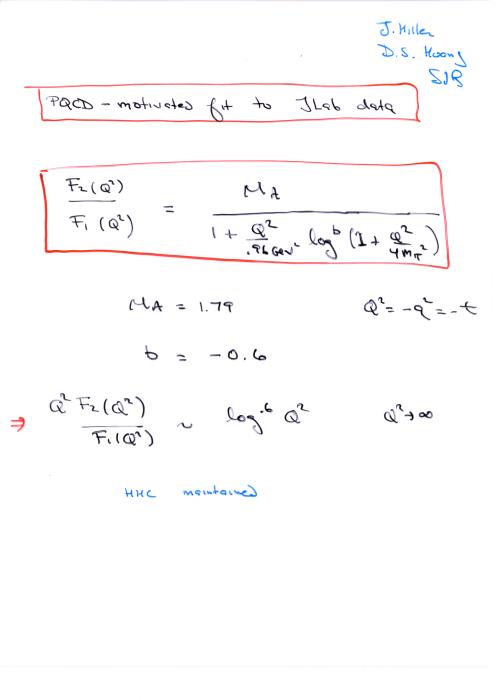 J. Hiller
D. S. Hwang
SJB
PQCD - motivated fit to JLab data
F₂(Q²) / F₁(Q²) = μA / (1 + Q²/.96 GeV² logᵇ (1 + Q²/4mπ²))
μA = 1.79 Q² = -q² = -t
b = -0.6
⇒ Q² F₂(Q²) / F₁(Q²) ~ log^.6 Q² Q² → ∞
HHC maintained